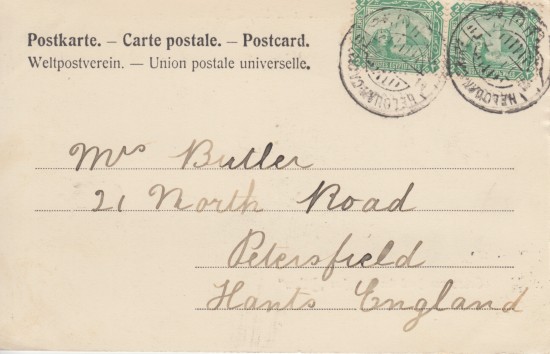 Postkarte. – Carte postale. – Postcard.
Weltpostverein. — Union postale universelle.
HELOUAN
Mrs Butler
21 North Road
Petersfield
Hants England